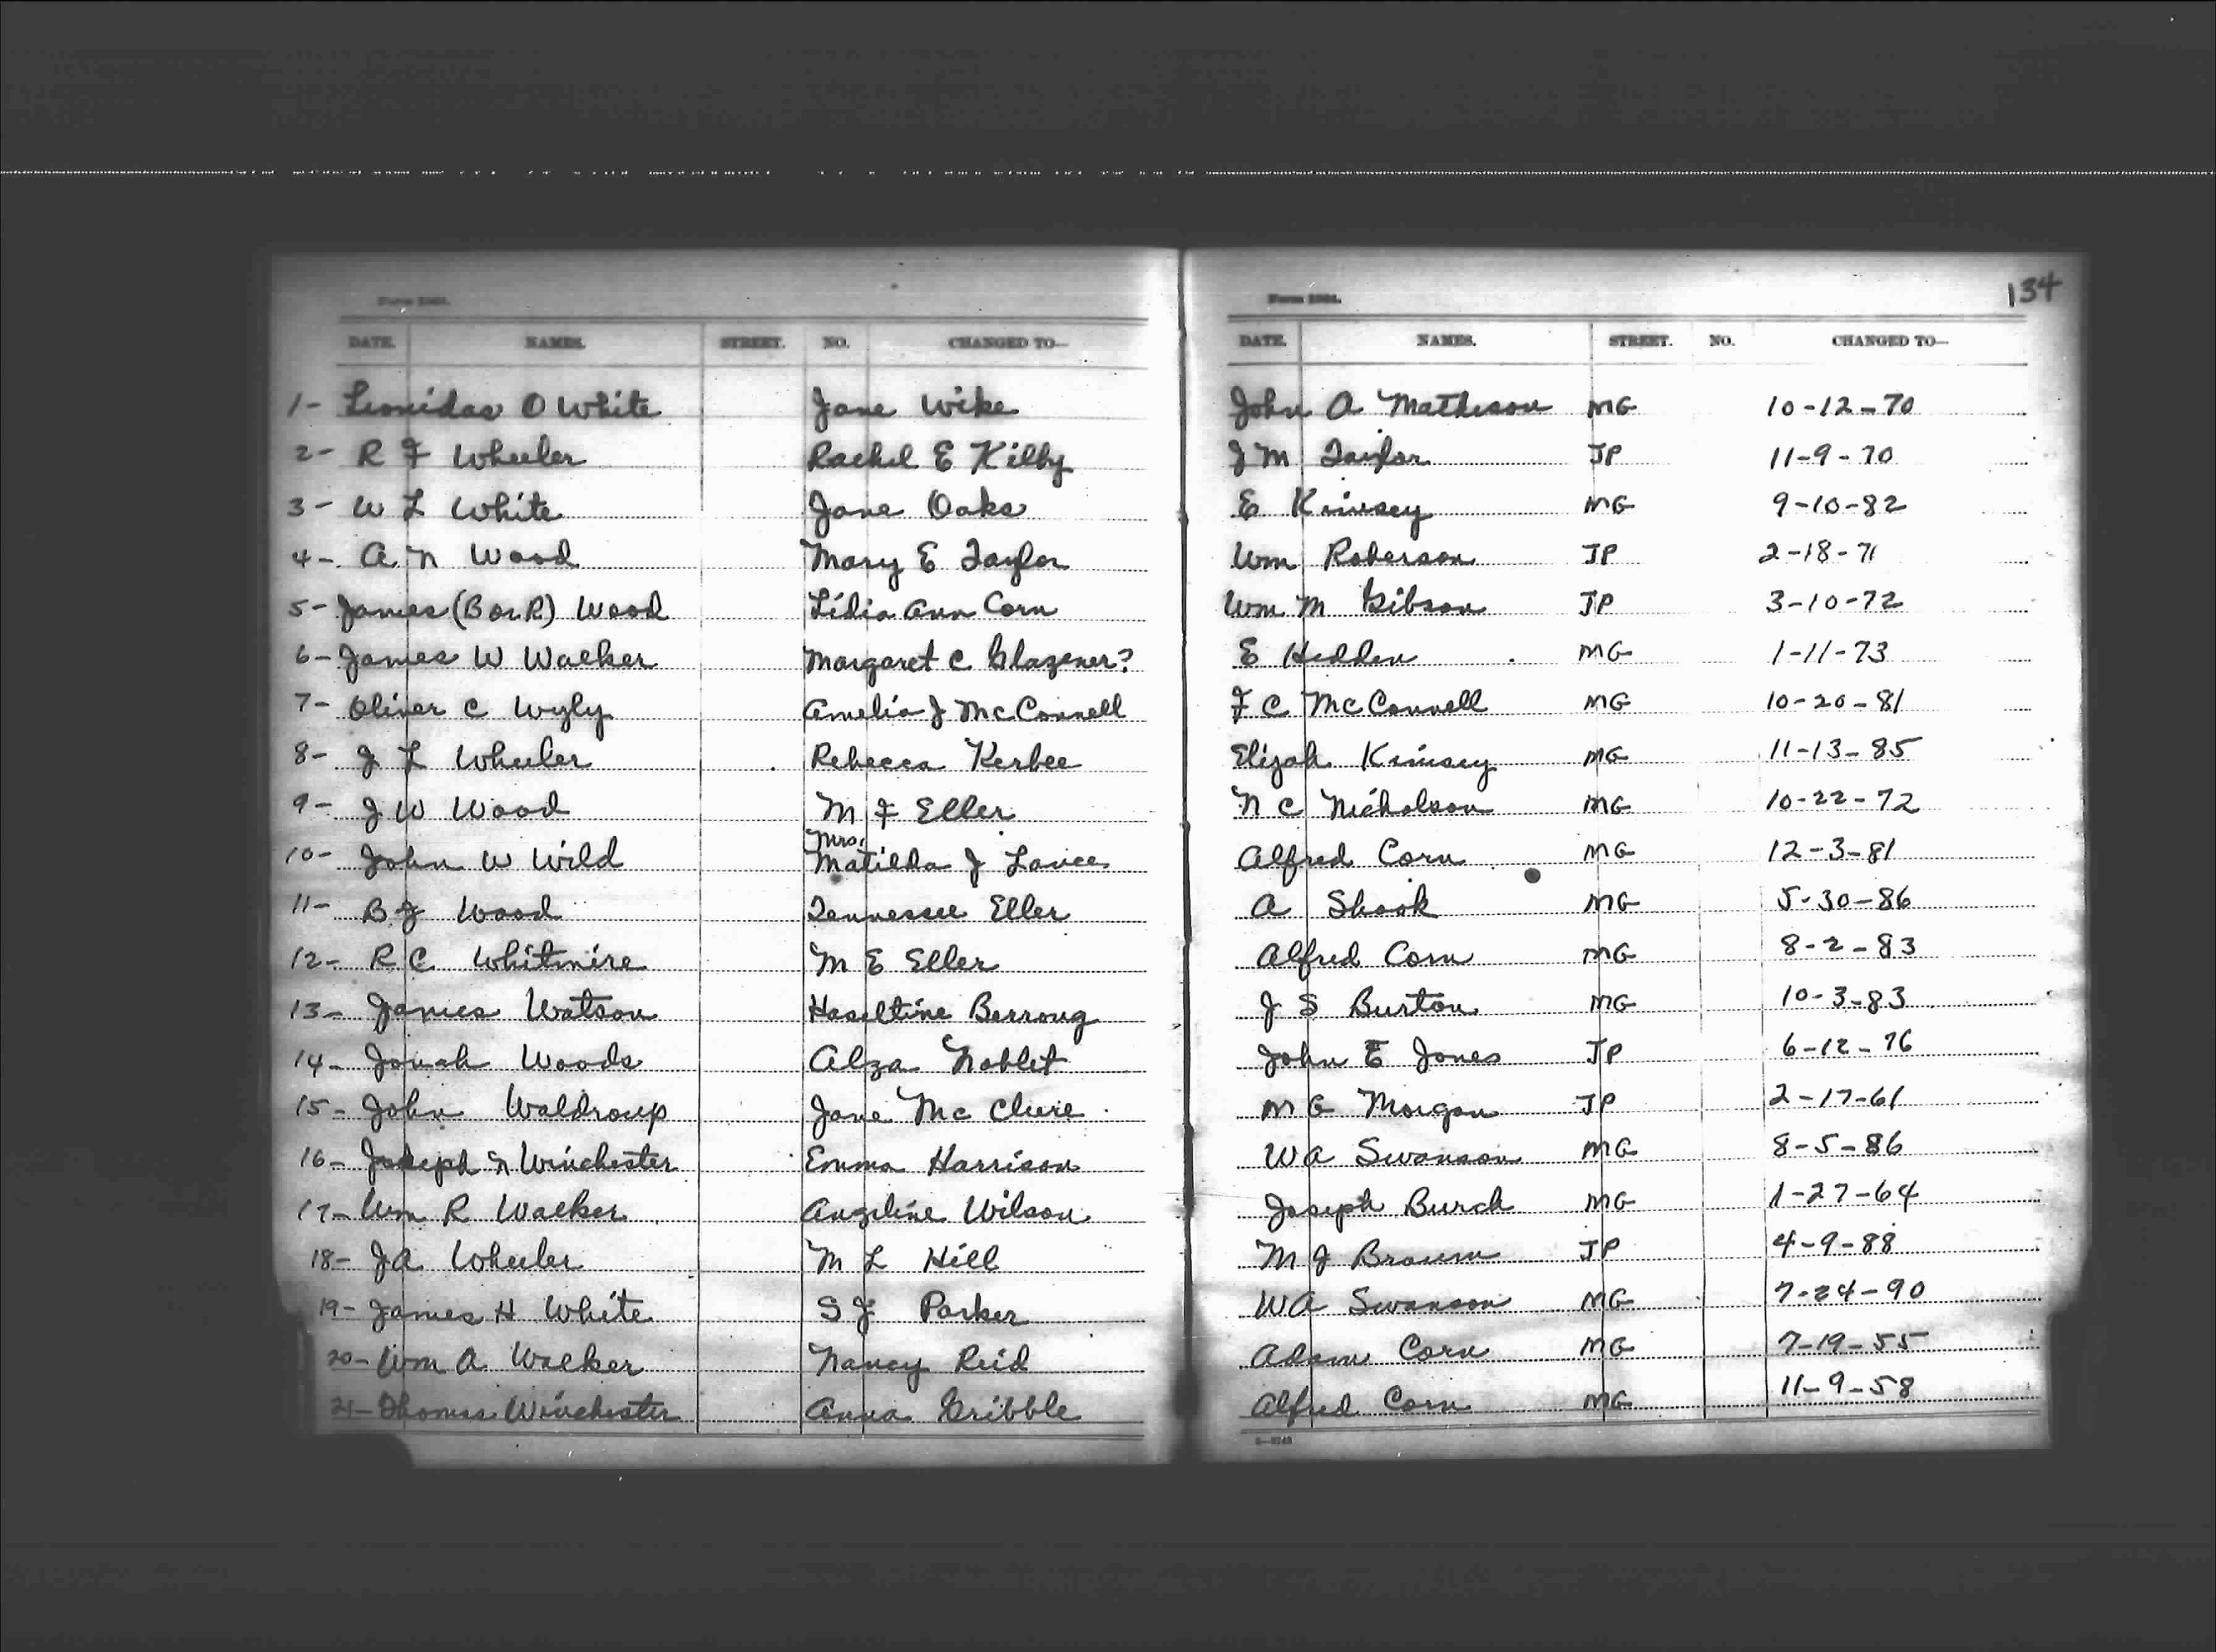 134
Form 1364. Form 1364.
DATE. NAMES. STREET. NO. CHANGED TO— DATE. NAMES. STREET. NO. CHANGED TO—
1- Leonidas O White Jane Wike John A Matheson MG 10-12-70
2- R F Wheeler Rachel E Kilby J M Taylor JP 11-9-70
3- W L White Jane Oaks E Kimsey MG 9-10-82
4- A N Wood Mary E Taylor Wm Roberson JP 2-18-71
5- James (B or R) Wood Lidia Ann Corn Wm M Gibson JP 3-10-72
6- James W Walker Margaret C Glazener? E Hedden MG 1-11-73
7- Oliver C Wyly Amelia J McConnell F C McConnell MG 10-20-81
8- J L Wheeler Rebecca Kerbee Elijah Kimsey MG 11-13-85
9- J W Wood M F Eller N C Nicholson MG 10-22-72
10- John W Wild Mrs. Matilda J Lance Alfred Corn MG 12-3-81
11- B J Wood Tennessee Eller A Shook MG 5-30-86
12- R C Whitmire M E Eller Alfred Corn MG 8-2-83
13- James Watson Haseltine Berrong J S Burton MG 10-3-83
14- Jonah Woods Alza Noblet John E Jones JP 6-12-76
15- John Waldroup Jane McClure M G Morgan JP 2-17-61
16- Joseph N Winchester Emma Harrison W A Swanson MG 8-5-86
17- Wm R Walker Angeline Wilson Joseph Burch MG 1-27-64
18- J A Wheeler M L Hill M J Brown JP 4-9-88
19- James H White S J Parker W A Swanson MG 7-24-90
20- Wm A Walker Nancy Reid Adam Corn MG 7-19-55
21- Thomas Winchester Anna Gribble Alfred Corn MG 11-9-58